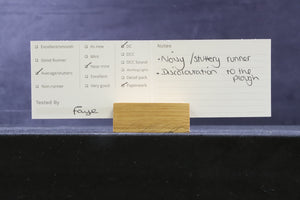 Excellent/smooth
Good Runner
Average/stutters
Non runner
Tested By
Faye
In-Hole
Mint
Near mint
Excellent
Very good
DC
DCC
DCC Sound
Detail pack
Paperwork
Notes
• Noisy /Stuttery runner
• Discolouration to the
plough